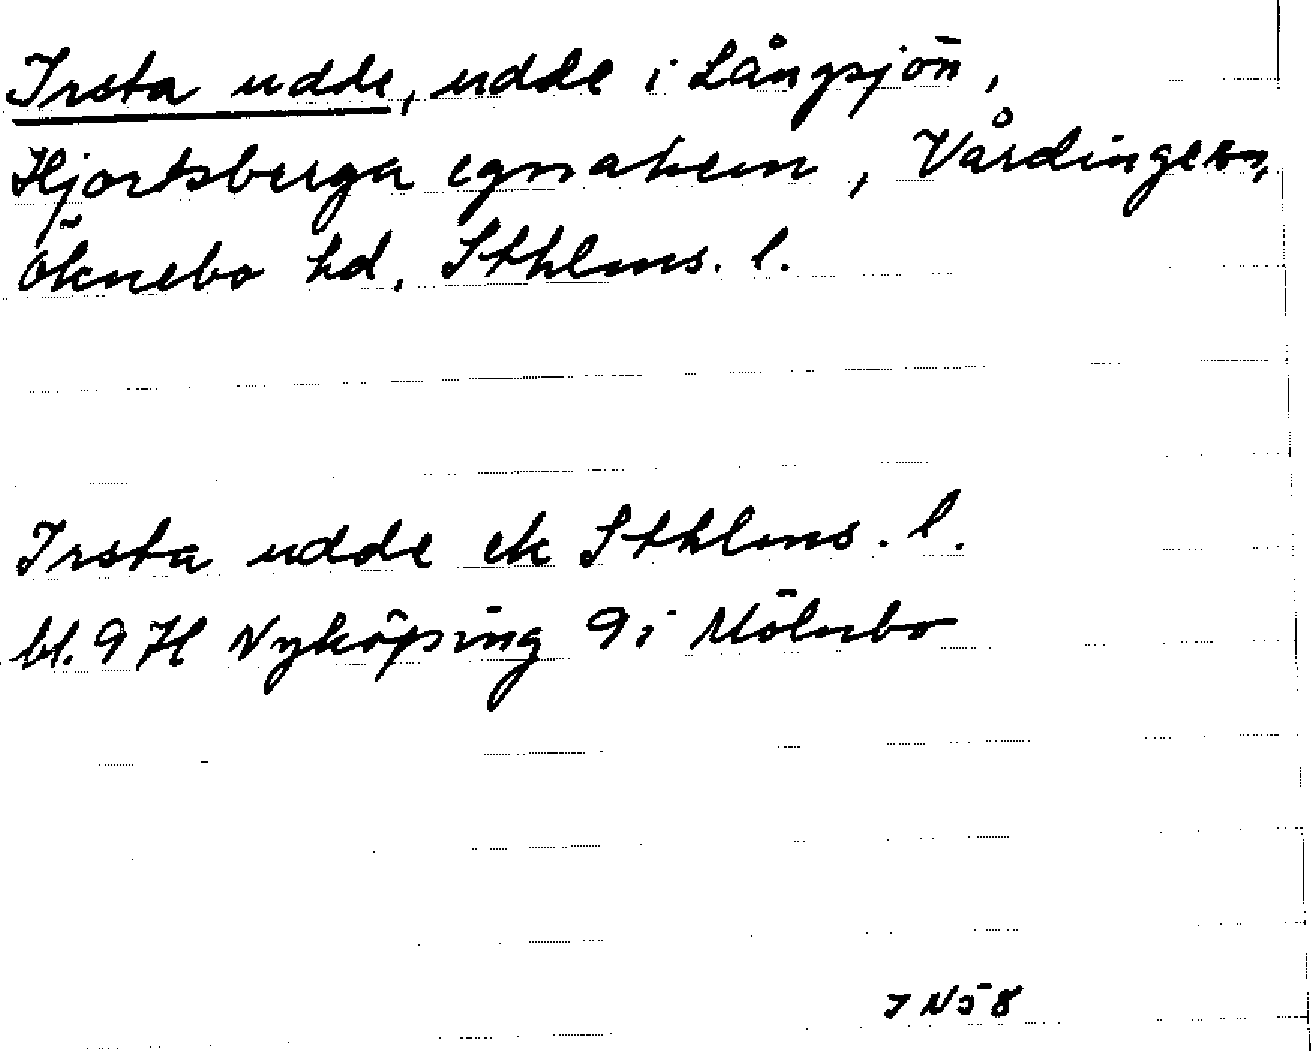 Irsta udde, udde i Långsjön,
Hjortsberga egnahem, Vårdinge sn,
Öknebo hd, Sthlms. l.
Irsta udde ek Sthlms. l.
bl. 9 H Nyköping 9i Mölnbo